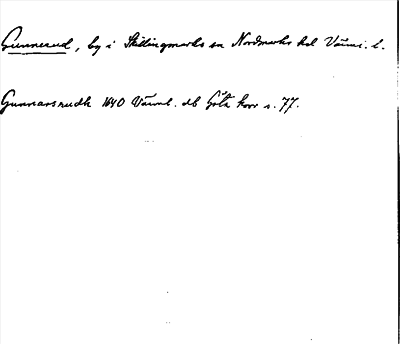 Gunnerud, by i Skillingmarks sn Nordmarks hd Värml. l.
Gunnarsrudh 1640 Värml. db Göta hovr s. 77.